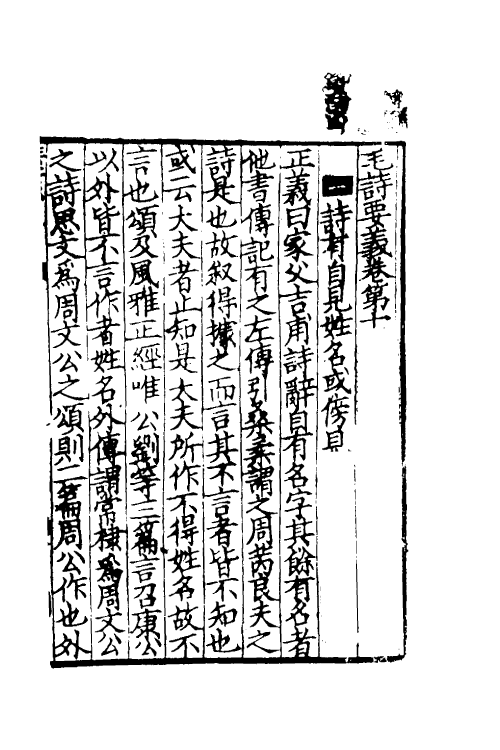 毛詩要義卷第十
一詩有自見姓名或傍見
正義曰家父吉甫詩辭自有名字其餘有名者
他書傳記有之左傳引桑柔謂之周芮良夫之
詩是也故敘得據之而言其不言者皆不知也
或云大夫者止知是大夫所作不得姓名故不
言也頌及風雅正經唯公劉等三篇言召康公
以外皆不言作者姓名外傳謂常棣爲周文公
之詩思文爲周文公之頌則二篇周公作也外